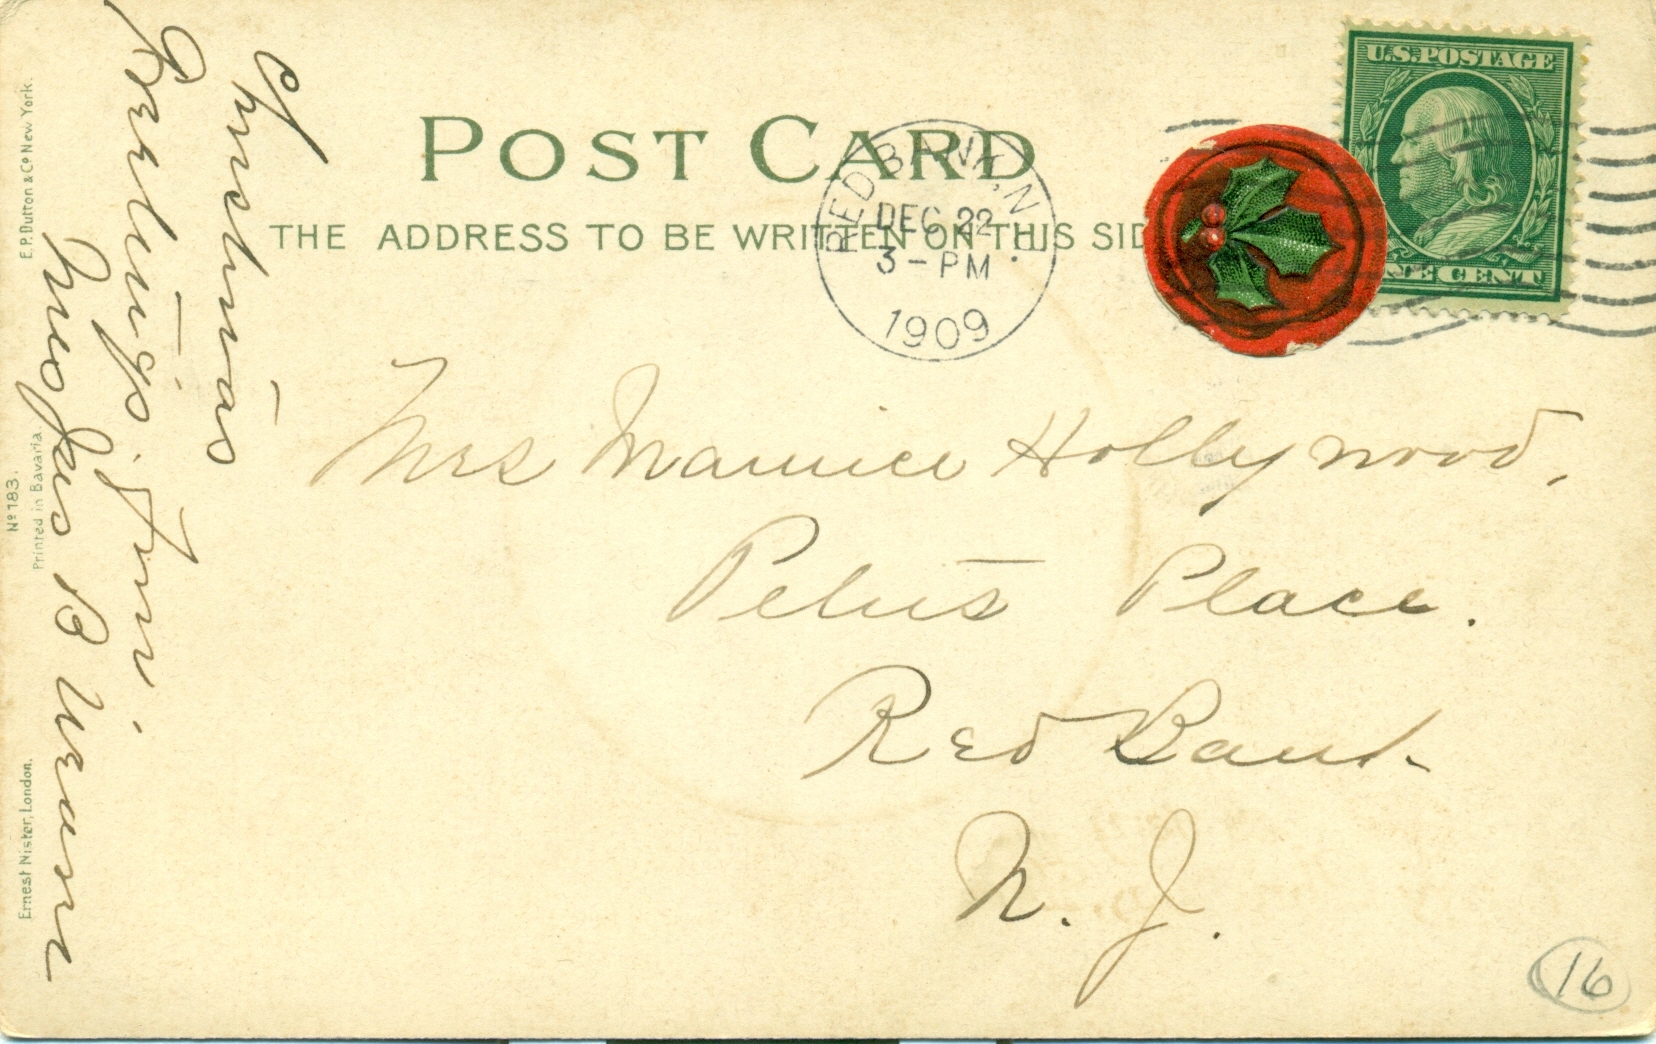 POST CARD
THE ADDRESS TO BE WRITTEN ON THIS SID
RED BANK, N.J.
DEC 22
3-PM
1909
U.S. POSTAGE
ONE CENT
Mrs Maurice Hollywood,
Peters Place.
Red Bank
N. J.
16
Christmas
Greetings from
Mrs Jas B
E.P. Dutton & Co New York.
No 183.
Printed in Bavaria.
Ernest Nister, London.